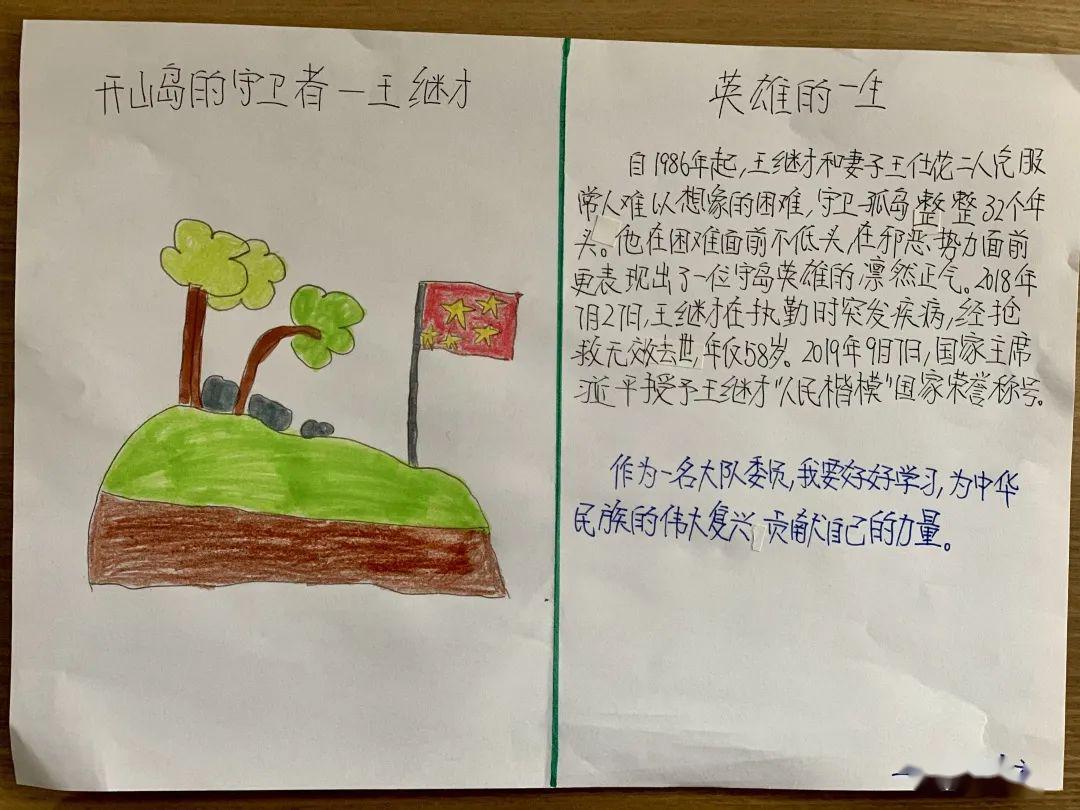 开山岛的守卫者—王继才
英雄的一生
自1986年起,王继才和妻子王仕花二人克服
常人难以想象的困难,守卫孤岛整整32个年
头。他在困难面前不低头,在邪恶势力面前
更表现出了一位守岛英雄的凛然正气。2018年
7月27日,王继才在执勤时突发疾病,经抢
救无效去世,年仅58岁。2019年9月7日,国家主席
近平授予王继才“人民楷模”国家荣誉称号。
作为一名大队委员,我要好好学习,为中华
民族的伟大复兴贡献自己的力量。